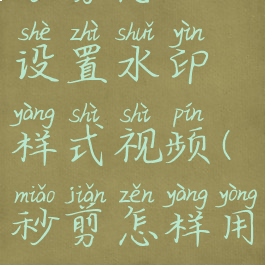 shè zhì shuǐ yìn
设置水印
yàng shì shì pín
样式视频(
miǎo jiǎn zěn yàng yòng
秒剪怎样用